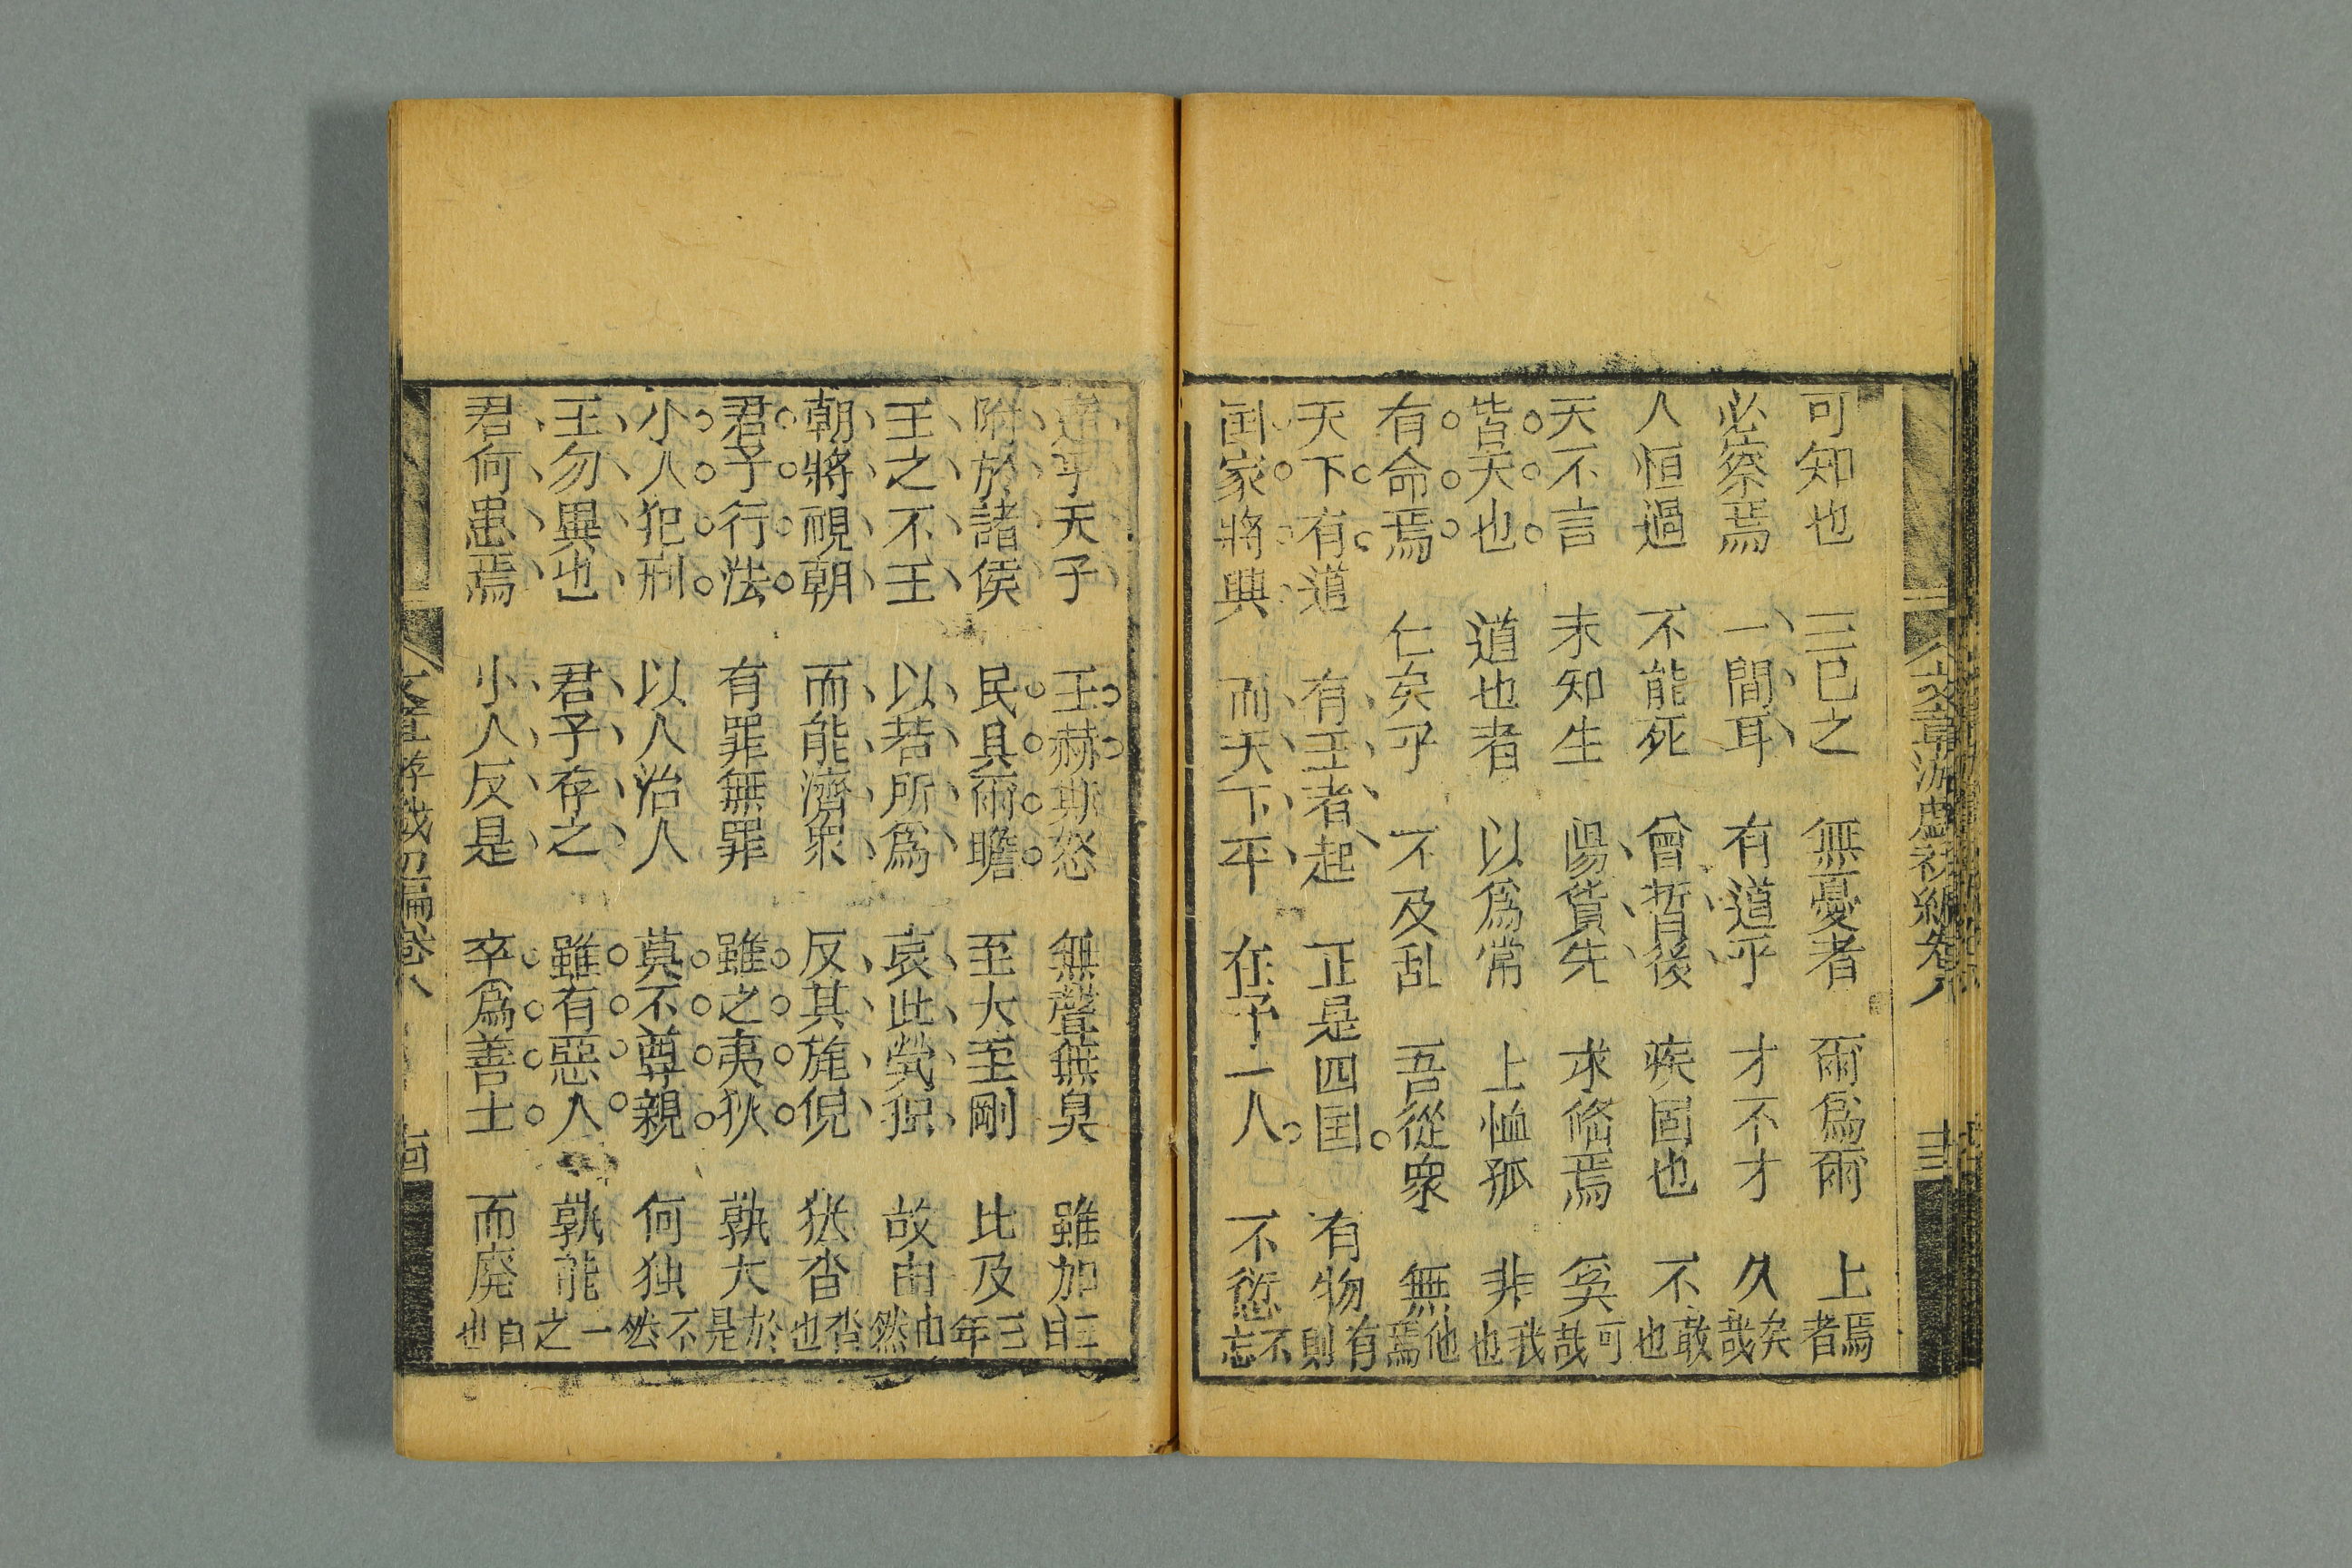 文章游戲初編卷八
可知也 三已之 無憂者 爾爲爾 上焉者
必察焉 一間耳 有道乎 才不才 久矣哉
人恒過 不能死 曾晳後 疾固也 不敢也
天不言 未知生 陽貨先 求脩焉 奚可哉
皆天也 道也者 以爲常 上恤孤 非我也
有命焉 仁矣乎 不及乱 吾從衆 無他焉
天下有道 有王者起 正是四囯 有物有則
囯家將興 而天下平 在予一人 不愆不忘
達乎天子 王赫斯怒 無聲無臭 雖加
附於諸侯 民具爾瞻 至大至剛 比及三年
王之不王 以若所爲 哀此煢独 故由由然
朝將視朝 而能濟衆 反其旄倪 犹沓沓也
君子行法 有罪無罪 雖之夷狄 孰大於是
小人犯刑 以人治人 莫不尊親 何独不然
王勿異也 君子存之 雖有惡人 孰能一之
君何患焉 小人反是 卒爲善士 而廃
文章游戲初編卷八